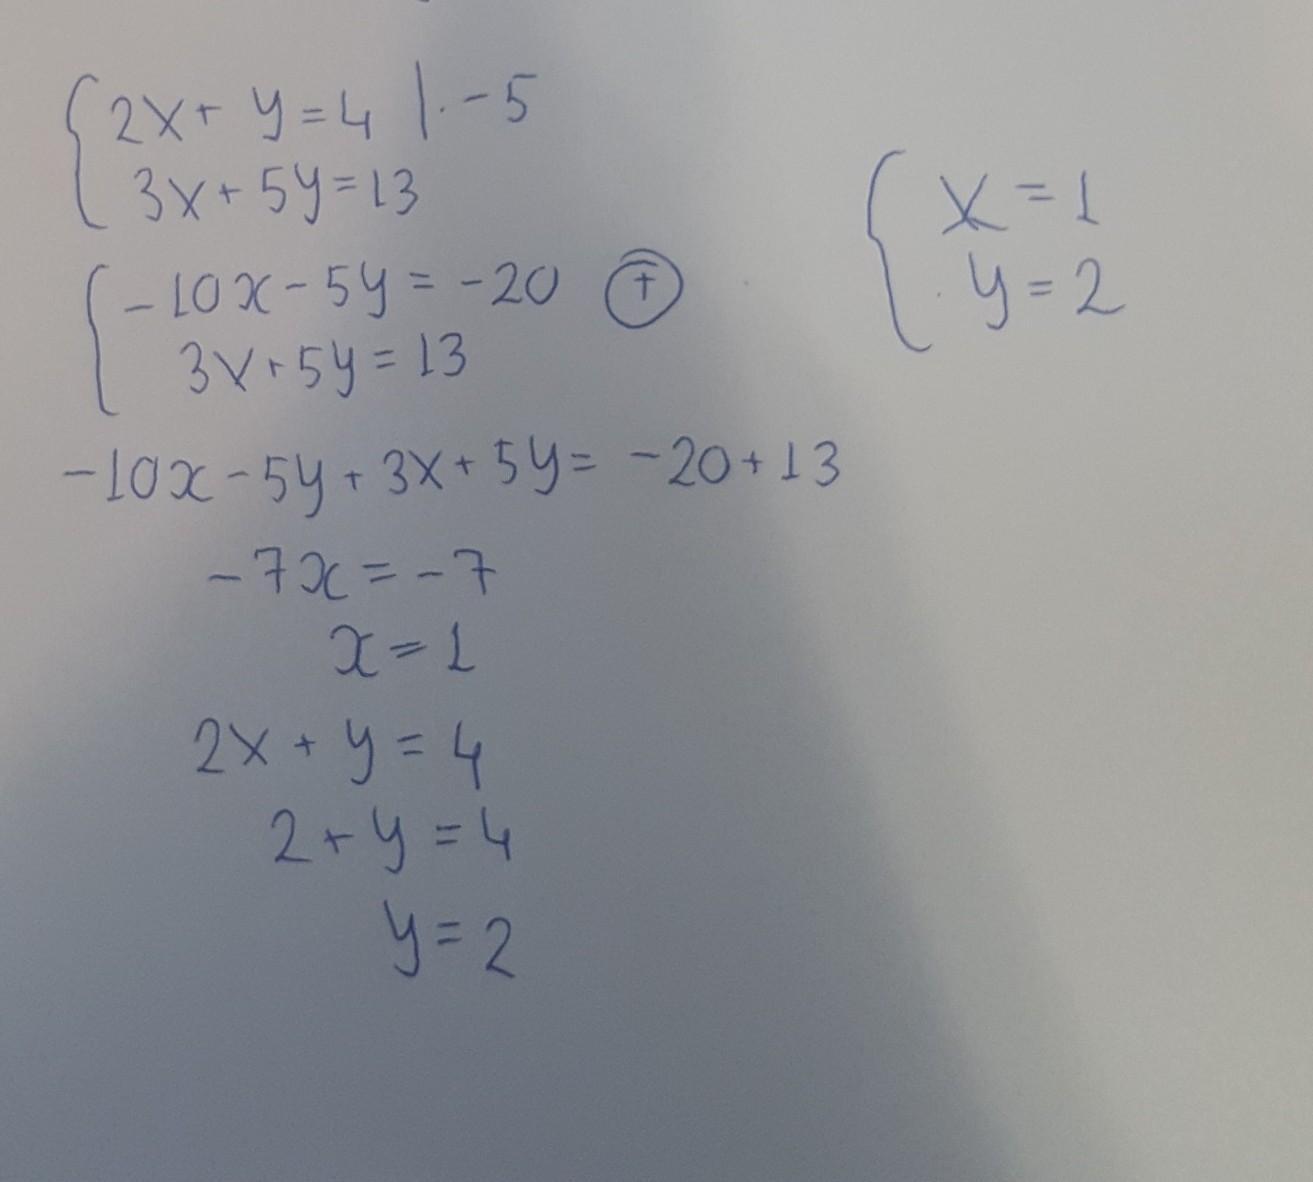 2x + y = 4 | · -5
3x + 5y = 13
-10x - 5y = -20 +
3x + 5y = 13
-10x - 5y + 3x + 5y = -20 + 13
-7x = -7
x = 1
2x + y = 4
2 + y = 4
y = 2
x = 1
y = 2